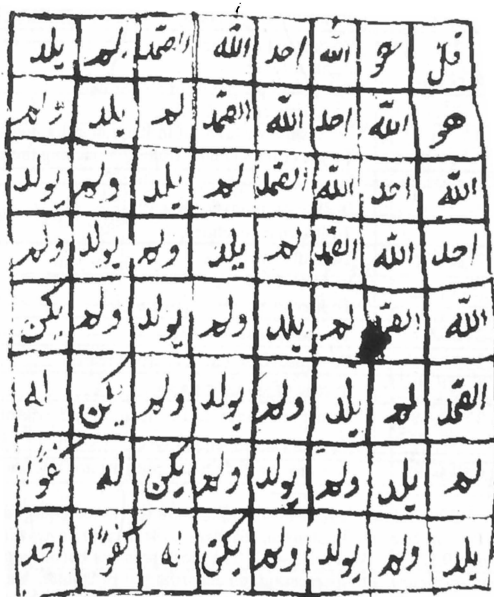 قل هو الله احد الله الصمد لم يلد
هو الله احد الله الصمد لم يلد ولم
الله احد الله الصمد لم يلد ولم يولد
احد الله الصمد لم يلد ولم يولد ولم
الله الصمد لم يلد ولم يولد ولم يكن
الصمد لم يلد ولم يولد ولم يكن له
لم يلد ولم يولد ولم يكن له كفوًا
يلد ولم يولد ولم يكن له كفوًا احد